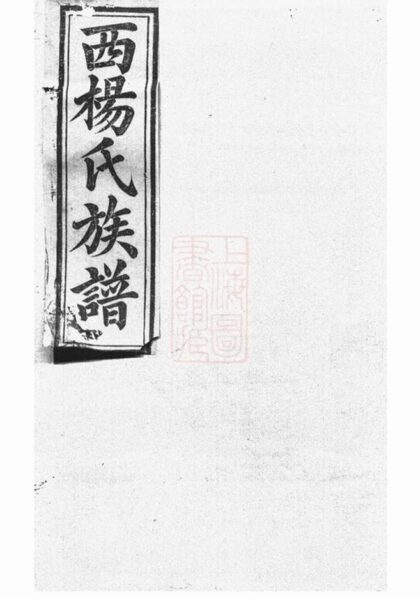 西楊氏族譜
上海圖
書館藏